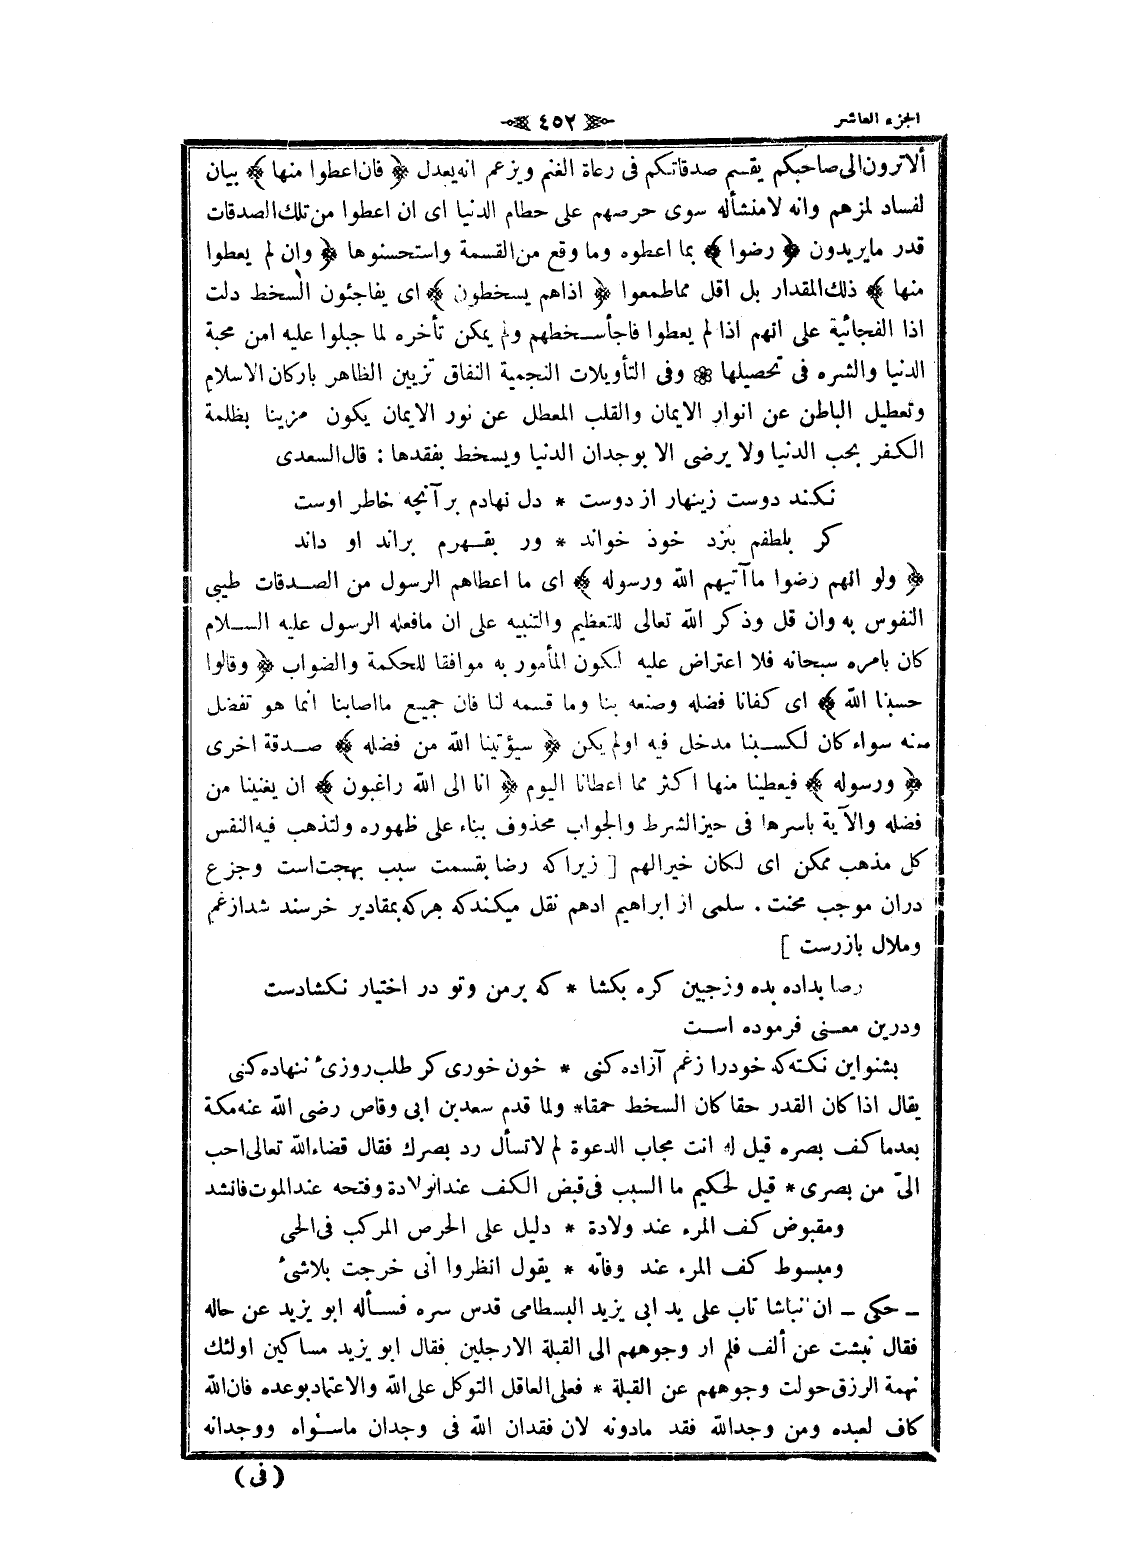 الجزء العاشر
٤٥٢
ألا ترون الى صاحبكم يقسم صدقاتكم فى رعاة الغنم ويزعم انه يعدل ﴿ فان اعطوا منها ﴾ بيان
لفساد لمزهم وانه لا منشأ له سوى حرصهم على حطام الدنيا اى ان اعطوا من تلك الصدقات
قدر ما يريدون ﴿ رضوا ﴾ بما اعطوه وما وقع من القسمة واستحسنوها ﴿ وان لم يعطوا
منها ﴾ ذلك المقدار بل اقل مما طمعوا ﴿ اذاهم يسخطون ﴾ اى يفاجئون السخط دلت
اذا الفجائية على انهم اذا لم يعطوا فاجأ سخطهم ولم يمكن تأخره لما جبلوا عليه امن محبة
الدنيا والشره فى تحصيلها ❁ وفى التأويلات النجمية النفاق تزيين الظاهر باركان الاسلام
وتعطيل الباطن عن انوار الايمان والقلب المعطل عن نور الايمان يكون مزينا بظلمة
الكفر بحب الدنيا ولا يرضى الا بوجدان الدنيا ويسخط بفقدها : قال السعدى
نكند دوست زينهار از دوست * دل نهادم بر آنچه خاطر اوست
كر بلطفم بنزد خوذ خواند * ور بقهرم براند او داند
﴿ ولو انهم رضوا ما آتيهم الله ورسوله ﴾ اى ما اعطاهم الرسول من الصدقات طيبى
النفوس به وان قل وذكر الله تعالى للتعظيم والتنبيه على ان ما فعله الرسول عليه السلام
كان بامره سبحانه فلا اعتراض عليه لكون المأمور به موافقا للحكمة والضواب ﴿ وقالوا
حسبنا الله ﴾ اى كفانا فضله وصنعه بنا وما قسمه لنا فان جميع ما اصابنا انما هو تفضل
منه سواء كان لكسبنا مدخل فيه اولم يكن ﴿ سيؤتينا الله من فضله ﴾ صدقة اخرى
﴿ ورسوله ﴾ فيعطينا منها اكثر مما اعطانا اليوم ﴿ انا الى الله راغبون ﴾ ان يغنينا من
فضله والآية باسرها فى حيز الشرط والجواب محذوف بناء على ظهوره ولتذهب فيه النفس
كل مذهب ممكن اى لكان خيرالهم [ زيراكه رضا بقسمت سبب بهجت است وجزع
دران موجب محنت . سلمى از ابراهيم ادهم نقل ميكند كه هركه بمقادير خرسند شد از غم
وملال بازرست ]
رضا بداده بده وزجبين كره بكشا * كه بر من وتو در اختيار نكشادست
ودرين معنى فرموده است
بشنو اين نكته كه خودرا زغم آزاده كنى * خون خورى كر طلب روزىٔ ننهاده كنى
يقال اذا كان القدر حقا كان السخط حمقا * ولما قدم سعد بن ابى وقاص رضى الله عنه مكة
بعدما كف بصره قيل له انت مجاب الدعوة لم لا تسأل رد بصرك فقال قضاء الله تعالى احب
الىّ من بصرى * قيل لحكيم ما السبب فى قبض الكف عند الولادة وفتحه عند الموت فانشد
ومقبوض كف المرء عند ولادة * دليل على الحرص المركب فى الحى
ومبسوط كف المرء عند وفاته * يقول انظروا أنى خرجت بلا شىٔ
ـ حكى ـ ان نباشا تاب على يد ابى يزيد البسطامى قدس سره فسأله ابو يزيد عن حاله
فقال نبشت عن ألف فلم ار وجوههم الى القبلة الا رجلين فقال ابو يزيد مساكين اولئك
نهمة الرزق حولت وجوههم عن القبلة * فعلى العاقل التوكل على الله والاعتماد بوعده فان الله
كاف لعبده ومن وجد الله فقد ما دونه لان فقدان الله فى وجدان ما سواه ووجدانه
( فى )